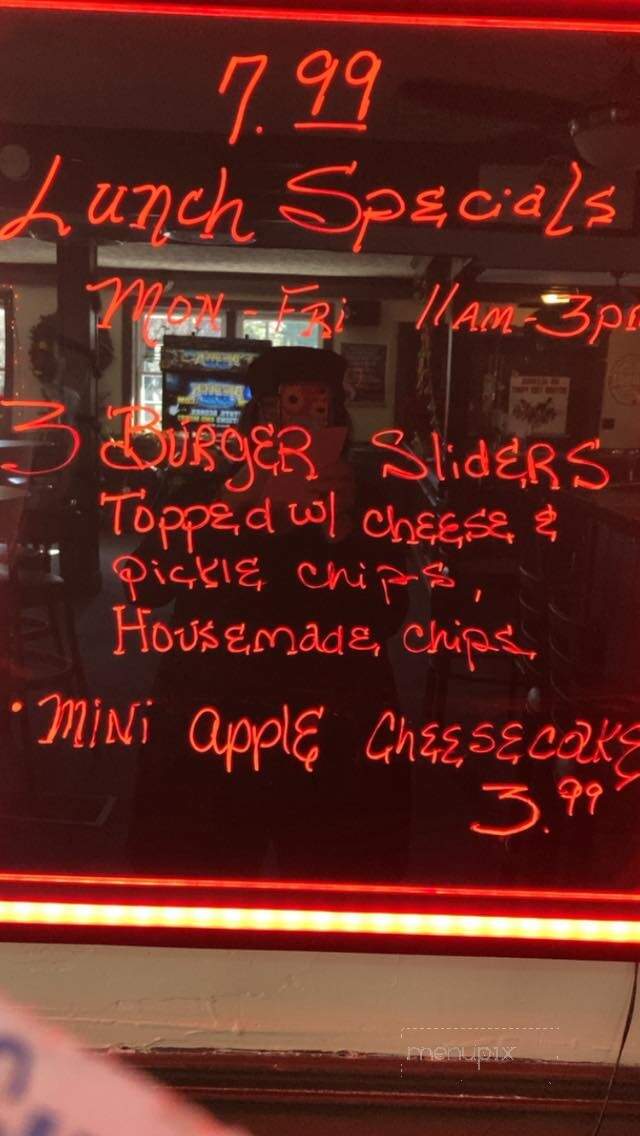 7.99
Lunch Specials
Mon-Fri 11AM-3p
3 Burger Sliders
Topped w/ cheese &
pickle chips,
Housemade chips
• Mini apple cheesecake
3.99
menupix